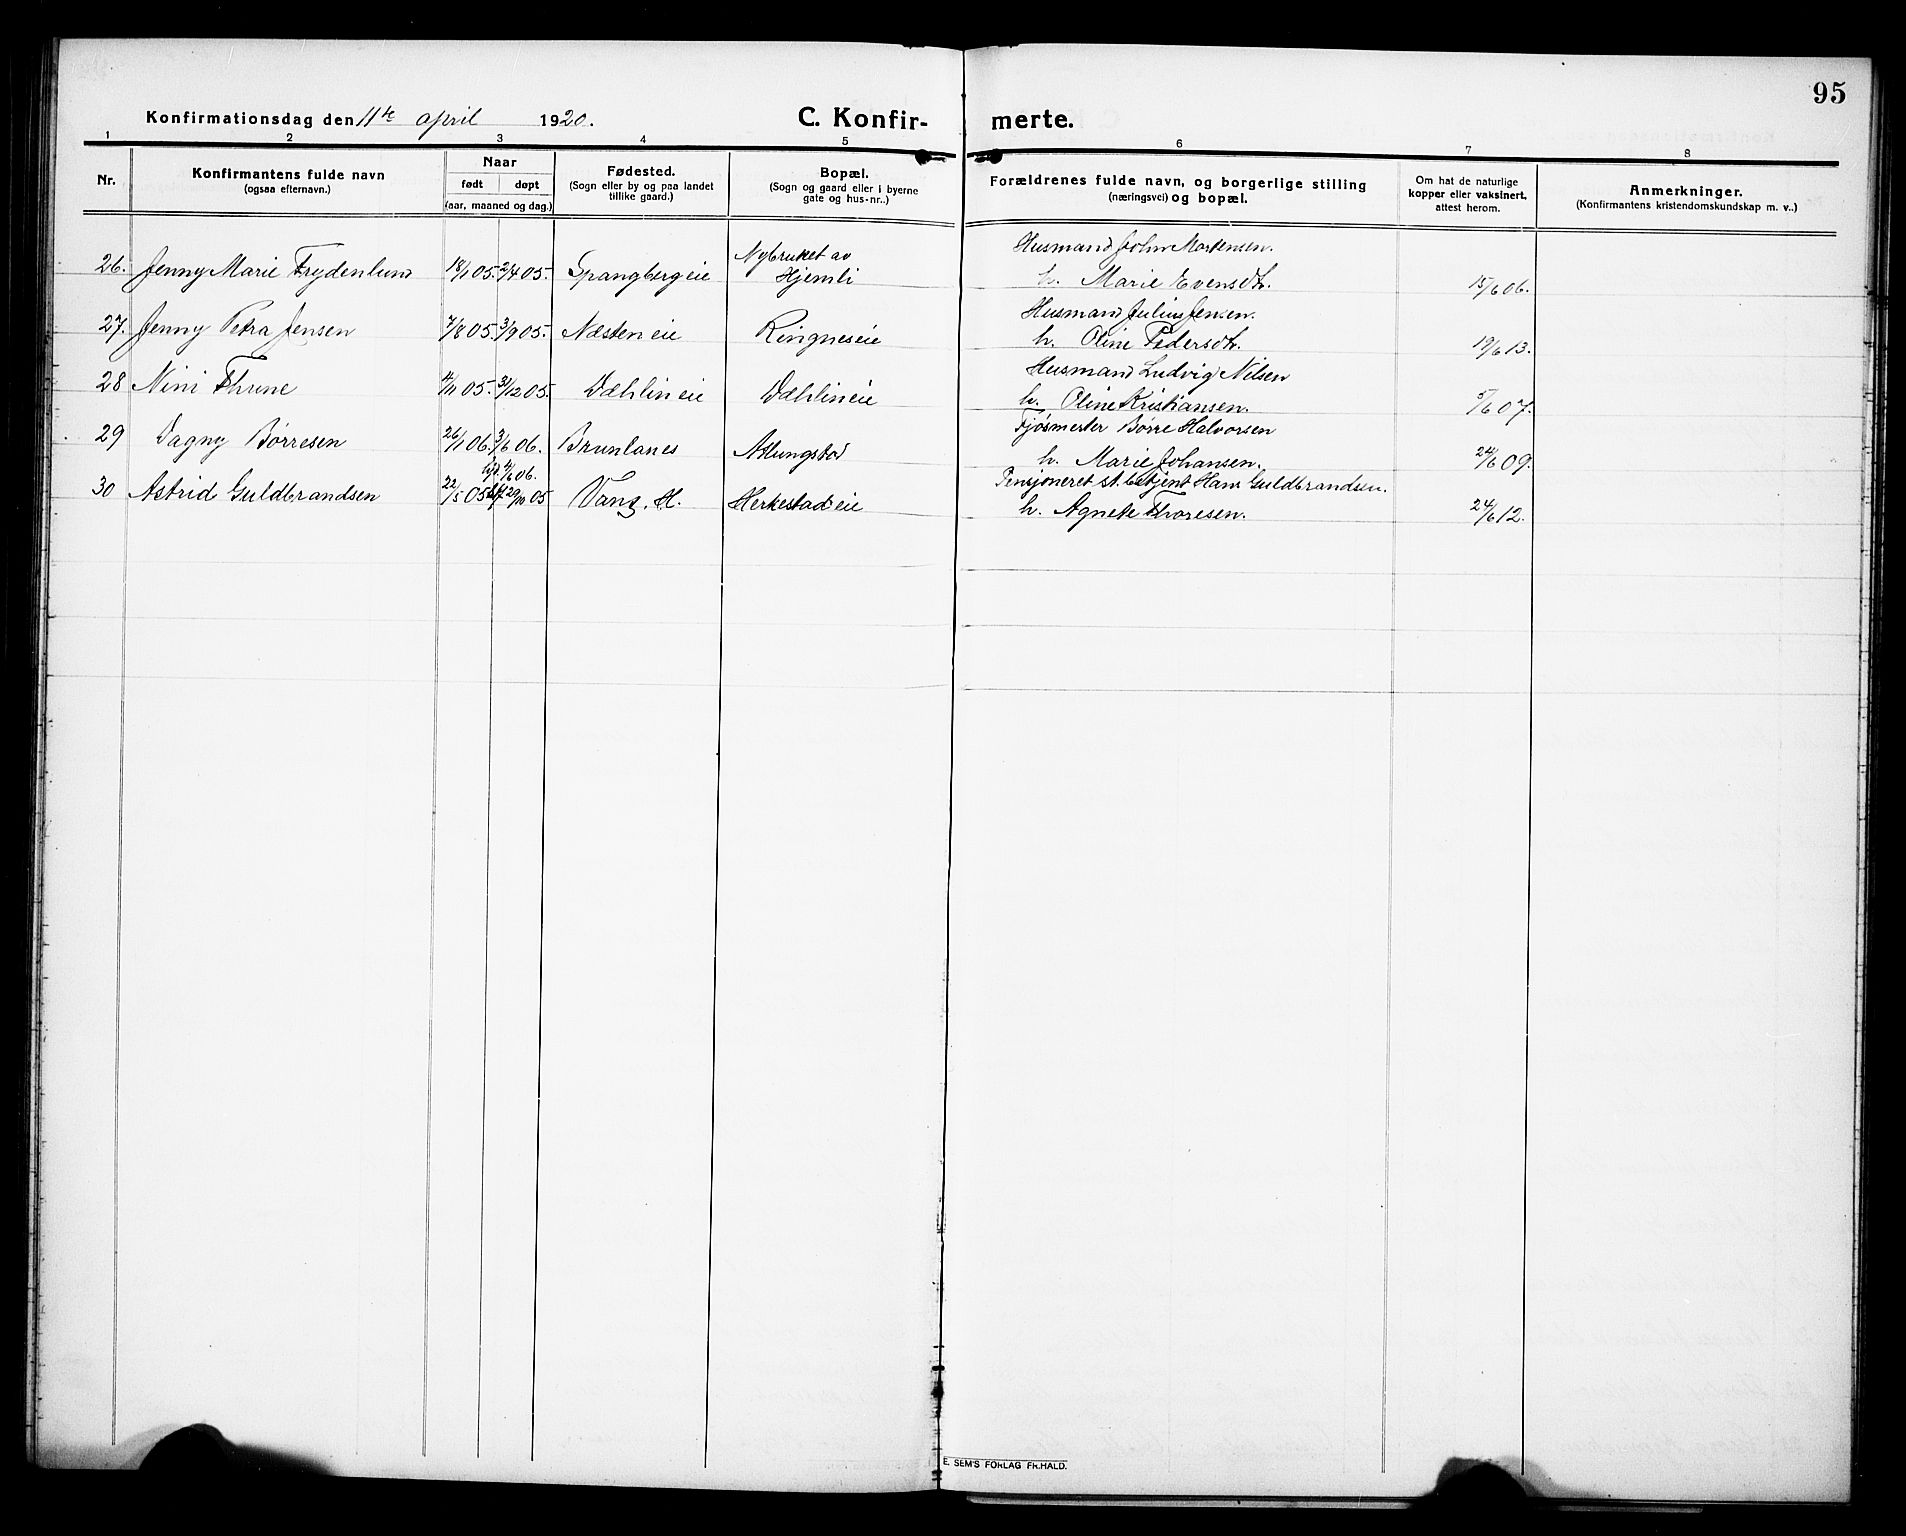 95
Konfirmationsdag den 11te april 1920.
C. Konfirmerte.
1 2 3 4 5 6 7 8
Nr.
Konfirmantens fulde navn
(ogsaa efternavn.)
Naar
født døpt
(aar, maaned og dag.)
Fødested.
(Sogn eller by og paa landet
tillike gaard.)
Bopæl.
(Sogn og gaard eller i byerne
gate og hus-nr..)
Forældrenes fulde navn, og borgerlige stilling
(næringsvei) og bopæl.
Om hat de naturlige
kopper eller vaksinert,
attest herom.
Anmerkninger.
(Konfirmantens kristendomskundskap m. v..)
Nybruket av Husmand John Martensen.
26. Jenny Marie Frydenlund 18/1 05. 2/4 05. Spangbergeie Hjemli h. Marie Evensdtr. 15/6 06.
Husmand Julius Jensen.
27. Jenny Petra Jensen 7/8 05. 3/9 05. Næsteneie Ringneseie h. Oline Pedersdtr. 19/6 13.
Husmand Ludvig Nilsen
28 Nini Thune 4/11 05. 3/12 05. Dæhlineie Dæhlineie h. Oline Kristiansen. 5/6 07.
Fjøsmester Børre Halvorsen
29 Dagny Børresen 26/1 06. 3/6 06. Brunlanes Atlungstad h. Marie Johansen. 24/6 09.
4/6 06. Pensjoneret st. betjent Hans Guldbrandsen.
30 Astrid Guldbrandsen 22/5 05 29/10 05 Vang. H. Herkestadeie h. Agnete Thoresen. 24/6 12.
E. SEM'S FORLAG FR.HALD.